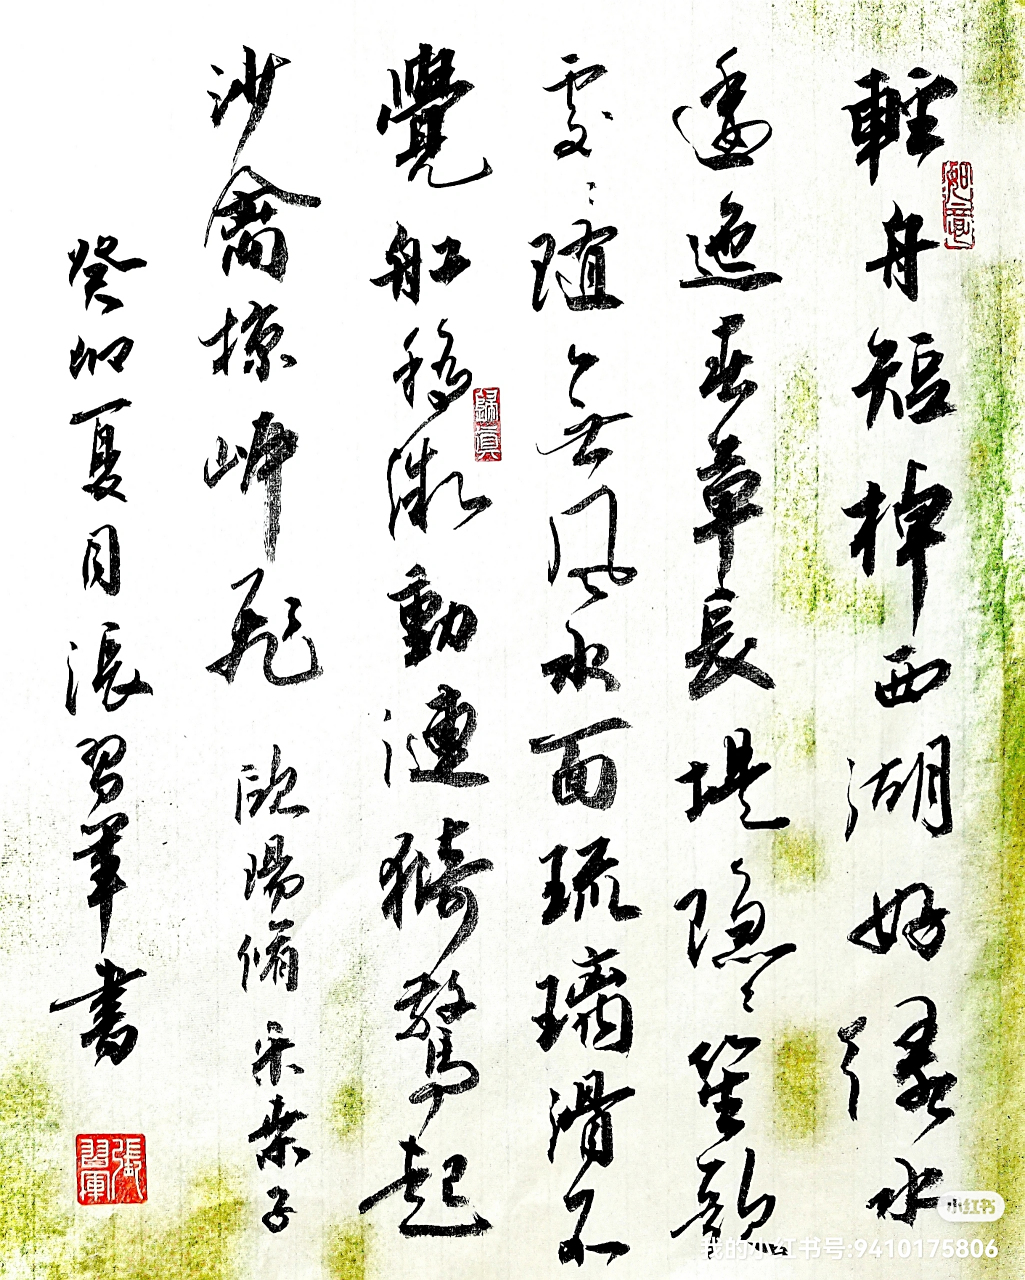 輕舟短棹西湖好綠水
逶迤芳草長堤隱〻笙歌
處〻隨無風水面琉璃滑不
覺船移微動漣漪驚起
沙禽掠岸飛 歐陽脩 采桑子
癸卯夏月張習軍書
如意
歸真
張習軍
小红书
我的小红书号:9410175806